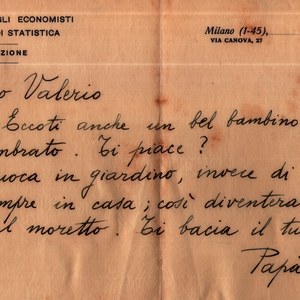 GLI ECONOMISTI
DI STATISTICA
ZIONE
Milano (1-45),
VIA CANOVA, 27
o Valerio
Eccoti anche un bel bambino
mbrato. Ti piace?
uoca in giardino, invece di
mpre in casa; così diventera
l moretto. Ti bacia il tu
Papà